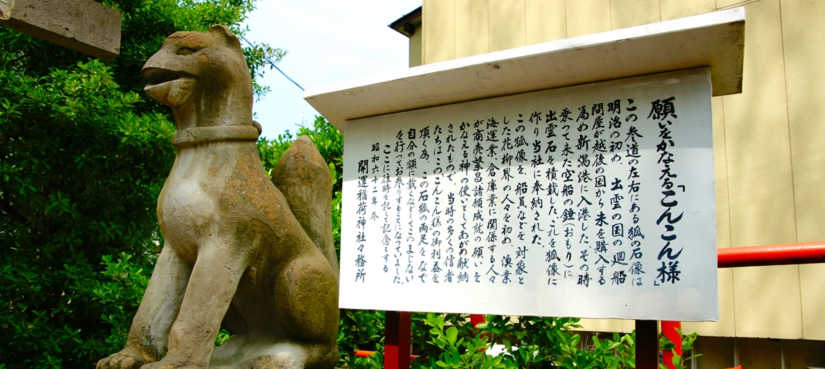 願いをかなえる「こんこん様」
この参道の左右にある狐の石像は
明治の初め、出雲の国の廻船
問屋が越後の国から米を購入する
為め新潟港に入港した。その時
乗って来た空船の錘(おもり)に
出雲石を積載した。これを狐像に
作り当社に奉納された。
この狐像を、船員などを対象と
した花柳界の人々を初め、漁業
海運業、倉庫業に関係する人々
が商売繁昌諸願成就の願いを
かなえる神の使いとしてあがめ奉納
されたもので、当時の多くの信者
たちはこのこんこん様の御利益を
頂く為、この石狐の両足をなで
自分の額に戴くなどしてさまざまのまじない
を行ってお参りするまでになっていました。
ここに往時を記して記念する
昭和六十二年冬
開運稲荷神社々務所